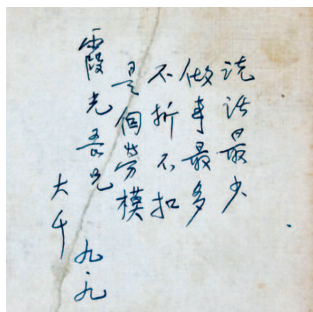 说话最少
做事最多
不折不扣
是个劳模
霞光吾兄
大千 九·九